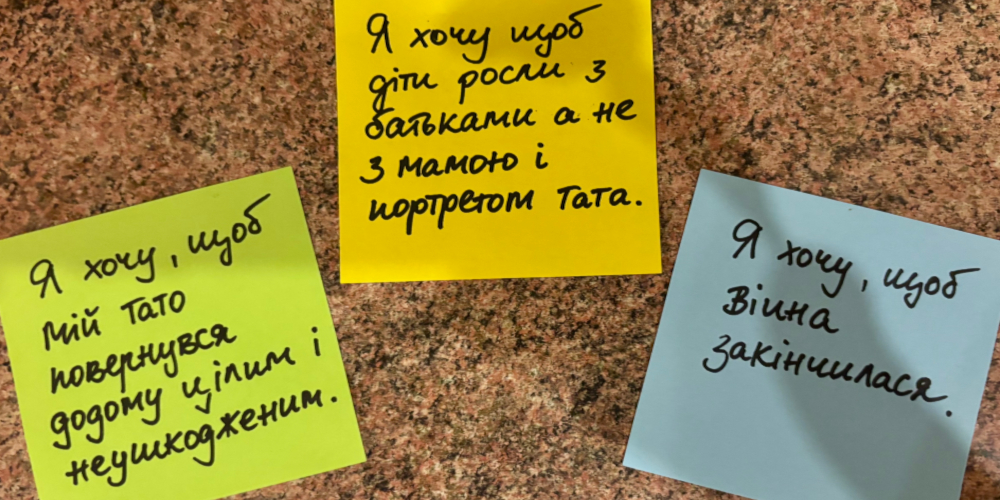 Я хочу щоб
діти росли з
батьками а не
з мамою і
портретом Тата.
Я хочу, щоб
мій Тато
повернувся
додому цілим і
неушкодженим.
Я хочу, щоб
війна
закінчилася.